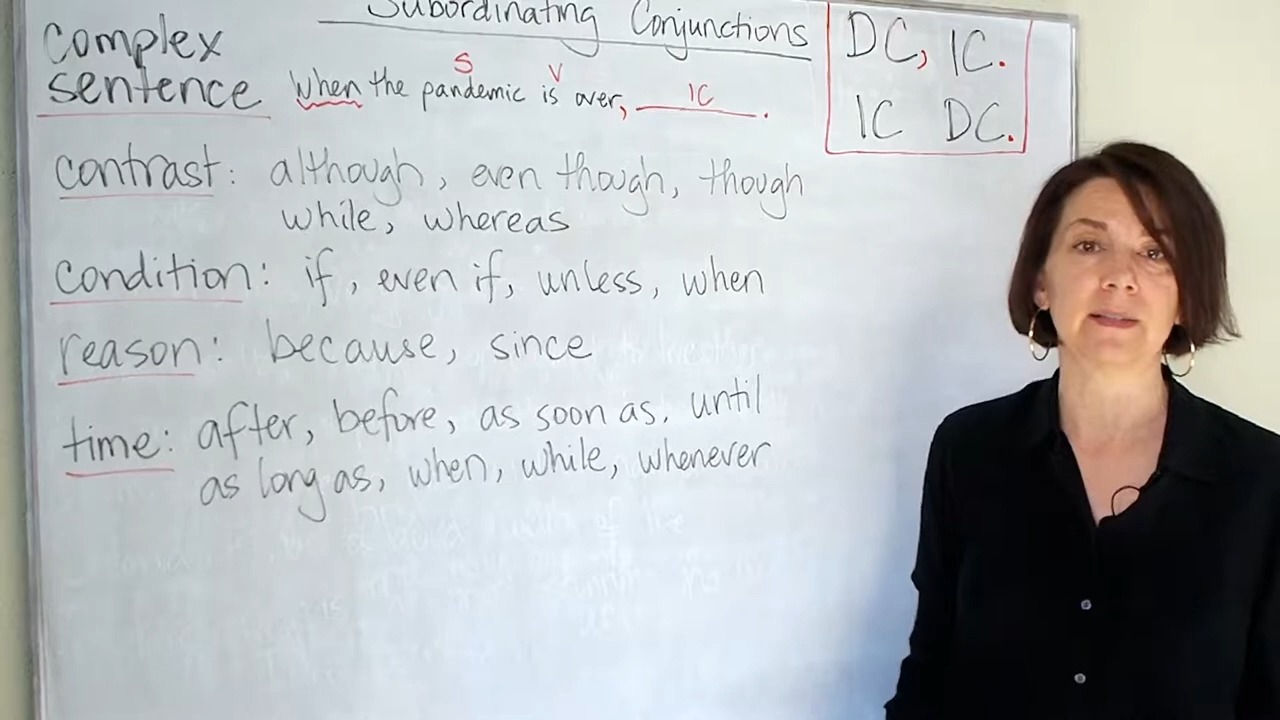 Subordinating Conjunctions
complex
sentence
S V
When the pandemic is over, IC.
DC, IC.
IC DC.
contrast: although, even though, though
while, whereas
condition: if, even if, unless, when
reason: because, since
time: after, before, as soon as, until
as long as, when, while, whenever